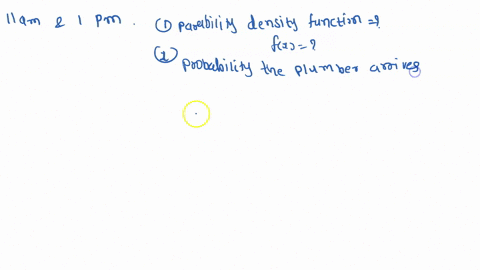 11am & 1 pm. ① parability density function =?
f(x) = ?
② probability the plumber arrives